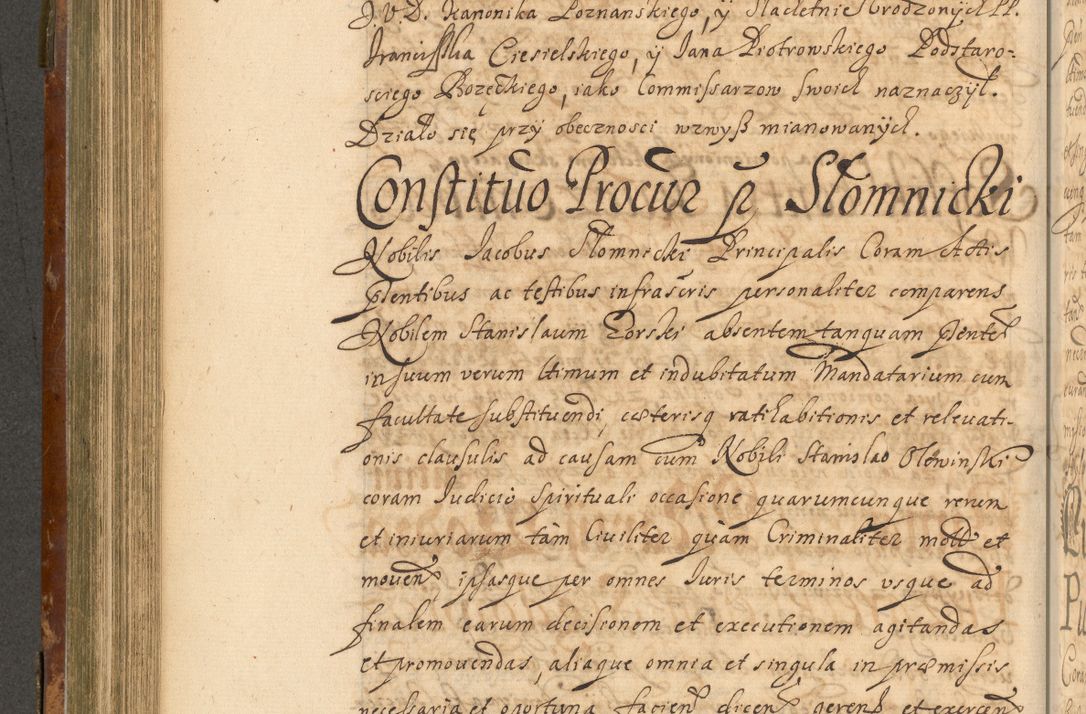 J.V.D. Kanonika Poznanskiego, y Slachetnie Urodzonych PP.
Franciszka Ciesielskiego, y Jana Piotrowskiego Podstaro-
sciego Bozęckiego, iako Commissarzow swoich naznaczył.
Działo się przy obecznosci wzwyß mianowanych.
Constituo Procur p Słomnicki
Nobilis Jacobus Słomnicki Principalis Coram Actis
pñtibus ac testibus infrascris personaliter comparens
Nobilem Stanislaum Gorski absentem tanquam pñtem
in suum verum ltimum et indubitatum Mandatarium cum
facultate substituendi, cæterisq ratihabitionis et relevati-
onis clausulis ad causam cum Nobili Stanislao Olewinski
coram Judicio Spirituali occasione quarumcunque rerum
et iniuriarum tàm Civiliter quàm Criminaliter mott et
movens ipsasque per omnes Juris terminos usque ad
finalem earum decisionem et executionem agitandas
et promovendas, aliaque omnia et singula in præmissis
necessaria et oportuna faciend dicend gerend et exercend